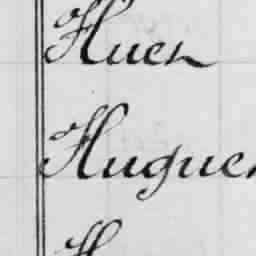 Huen
Hugue
H